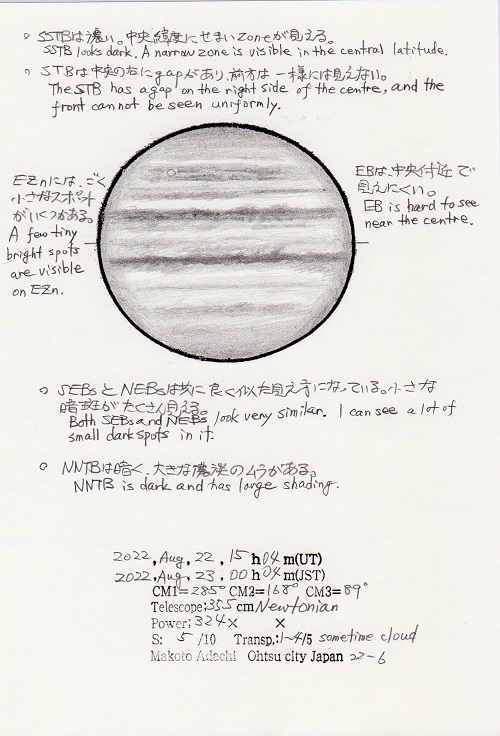 ○ SSTBは濃い。中央緯度にせまいzoneが見える。
SSTB looks dark. A narrow zone is visible in the central latitude.
○ STBは中央の右にgapがあり、前方は一様には見えない。
The STB has a gap on the right side of the centre, and the
front cannot be seen uniformly.
EZnには、ごく
小さなスポット
がいくつかある。
A few tiny
bright spots
are visible
on EZn.
EBは、中央付近で
見えにくい。
EB is hard to see
near the centre.
○ SEBsとNEBsは共に良く似た見え方になっている。小さな
暗斑がたくさん見える。
Both SEBs and NEBs look very similar. I can see a lot of
small dark spots in it.
○ NNTBは暗く、大きな濃淡のムラがある。
NNTB is dark and has large shading.
2022, Aug, 22, 15 h 04 m(UT)
2022, Aug, 23, 00 h 04 m(JST)
CM1=285° CM2=168° CM3=89°
Telescope:355 cm Newtonian
Power:324× ×
S: 5 /10 Transp.:1~4/5 sometime cloud
Makoto Adachi Ohtsu city Japan 22-6